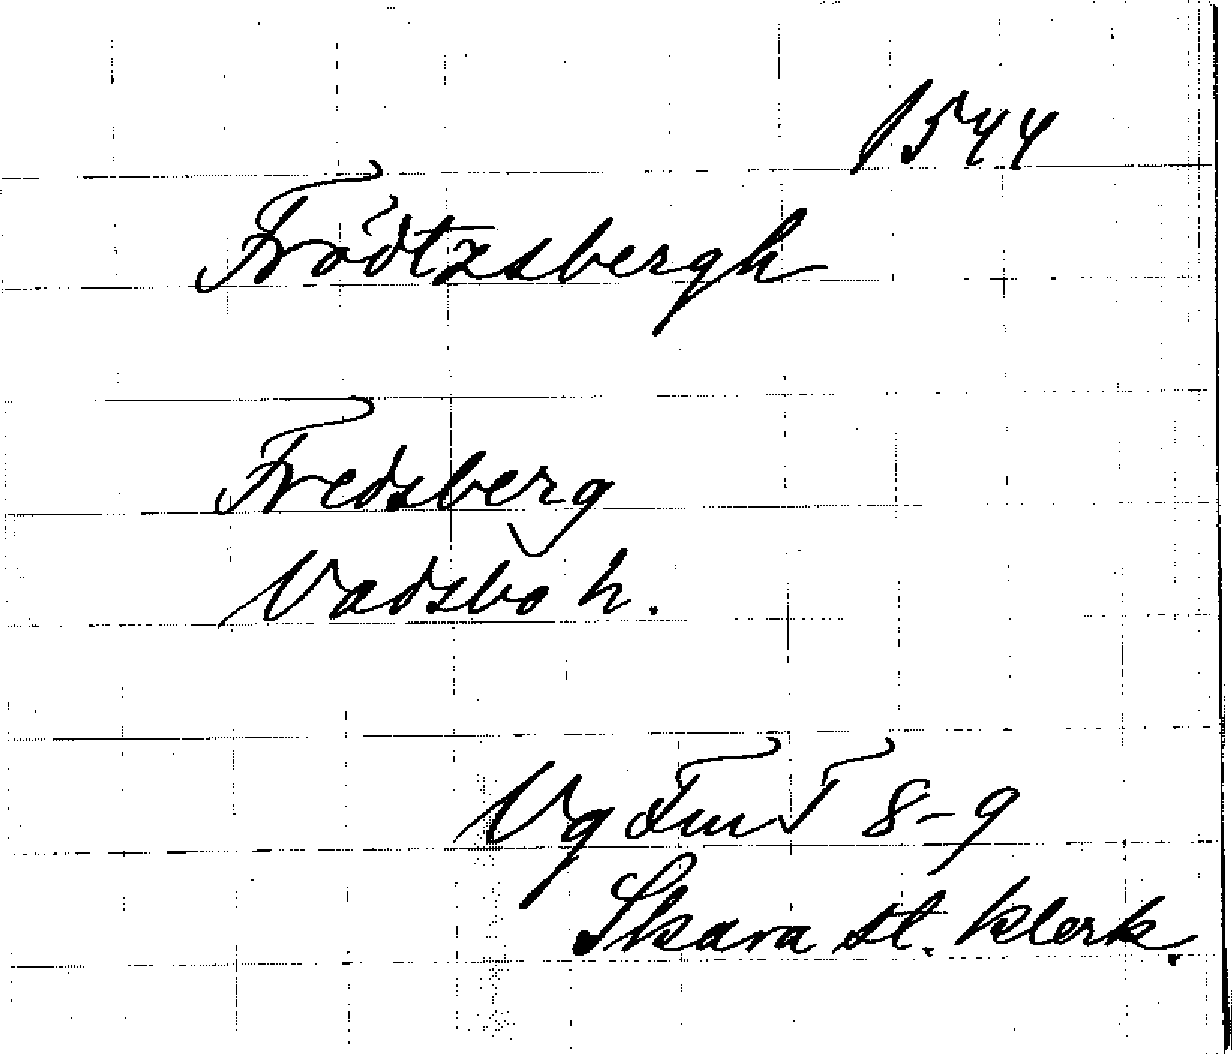 1544
Frödtzsbergh
Fredsberg
Vadsbo h.
Vg Fmt 8-9
Skara st. klerk.